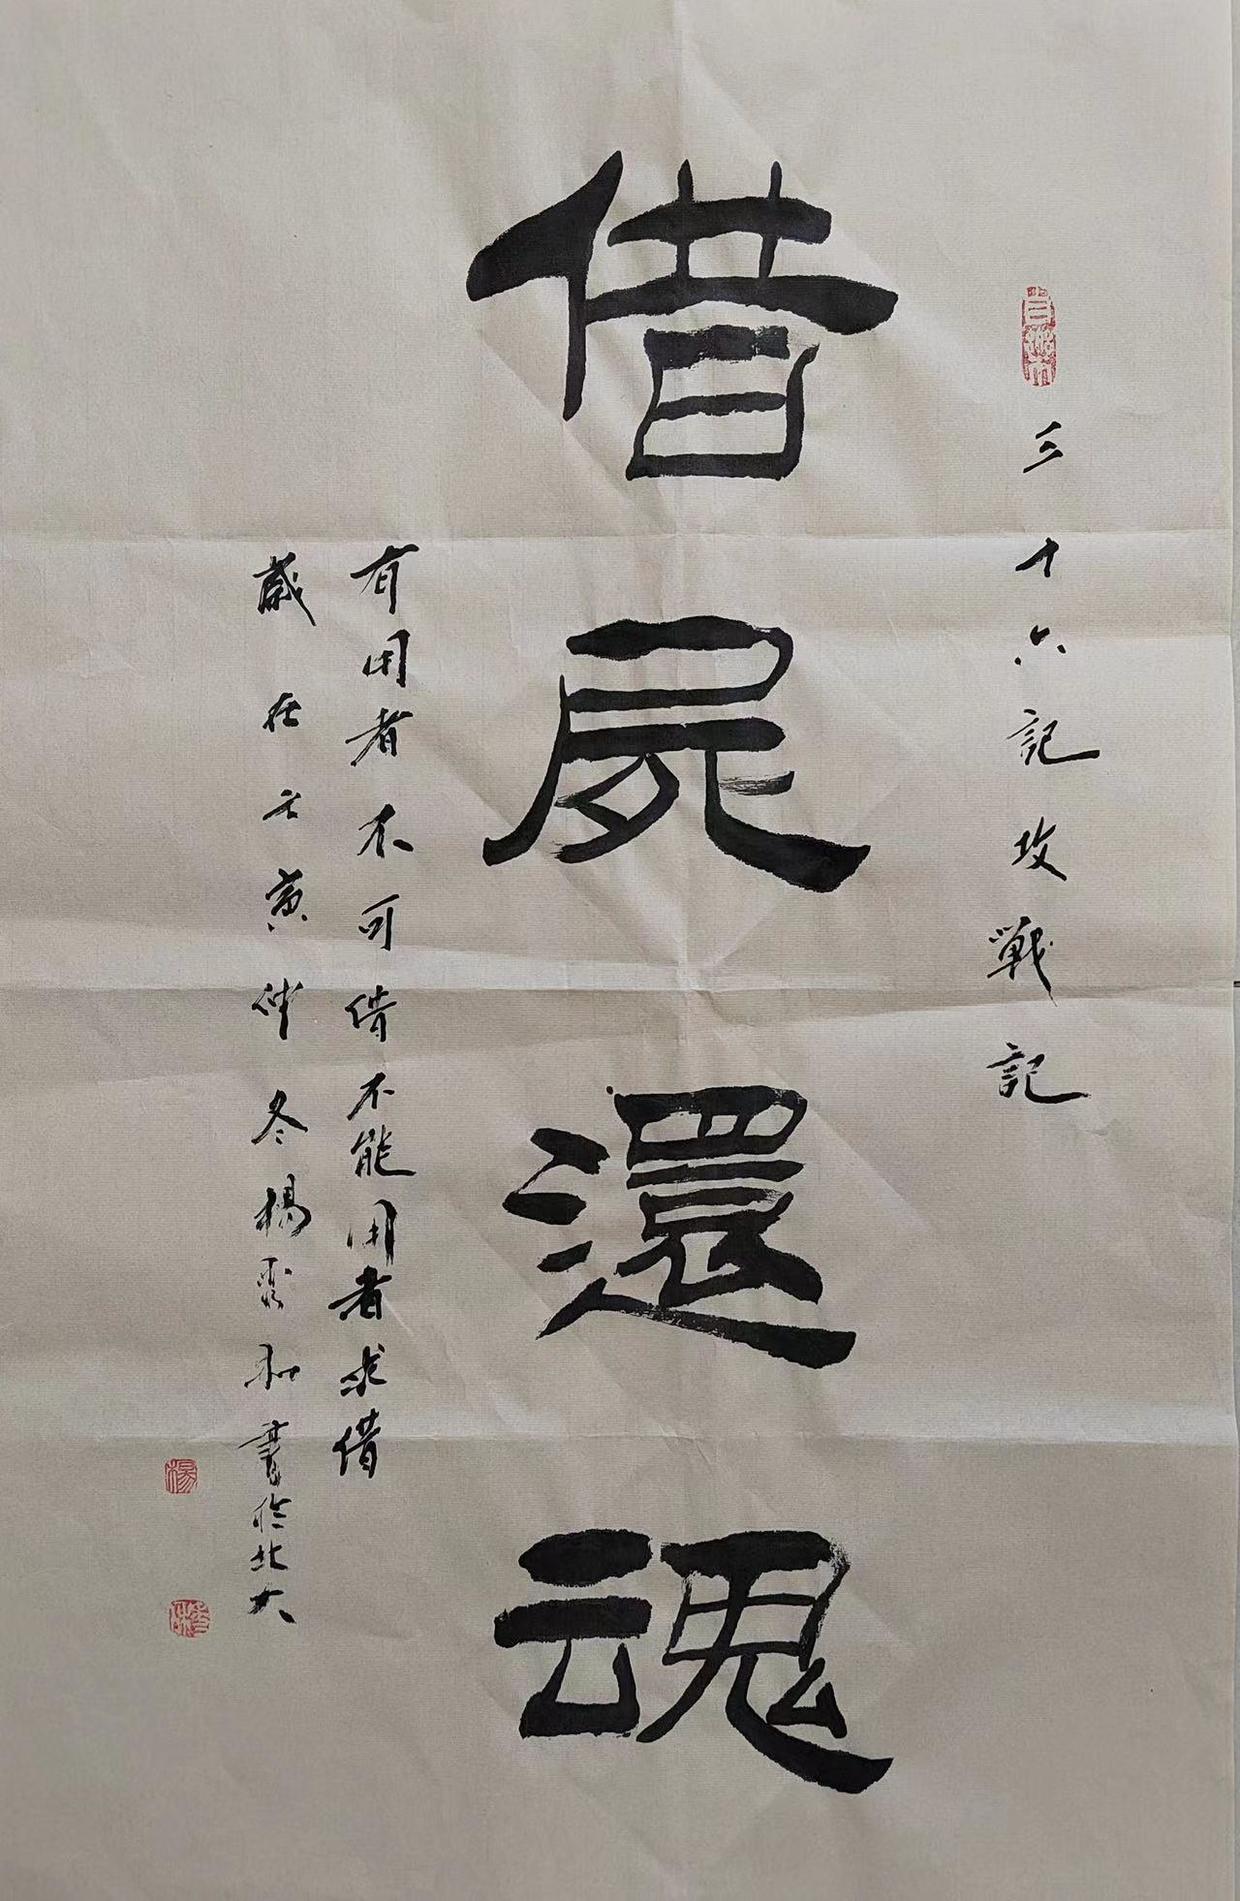 三十六記攻戰記
借屍還魂
有用者不可借不能用者求借
歲在壬寅仲冬楊書於北大
楊